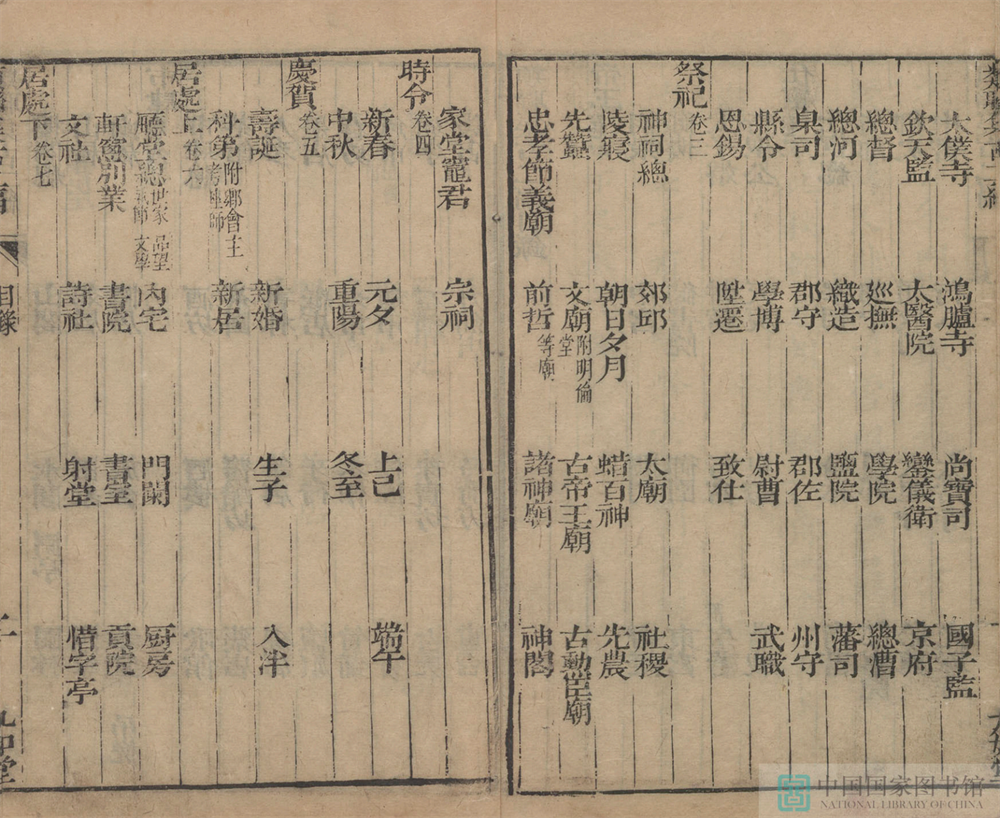 太僕寺 鴻臚寺 尚寶司 國子監
欽天監 太醫院 鑾儀衛 京府
總督 廵撫 學院 總漕
總河 織造 鹽院 藩司
臬司 郡守 郡佐 州守
縣令 學博 尉曹 武職
恩錫 陞遷 致仕
祭祀 卷三
神祠總 郊邱 太廟 社稷
陵寢 朝日夕月 蜡百神 先農
先蠶 文廟 附明倫堂 古帝王廟 古勳臣廟
忠孝節義廟 前哲 等廟 諸神廟 神閣
家堂竈君 宗祠
時令 卷四
新春 元夕 上巳 端午
中秋 重陽 冬至
慶賀 卷五
壽誕 新婚 生子 入泮
科第 附鄉會主考座師 新居
居處上 卷六
廳堂總 世家 品望 武節 文學 內宅 門闌 厨房
軒齋別業 書院 書室 貢院
文社 詩社 射堂 惜字亭
居處下 卷七
目錄
二
中国国家图书馆
NATIONAL LIBRARY OF CHINA